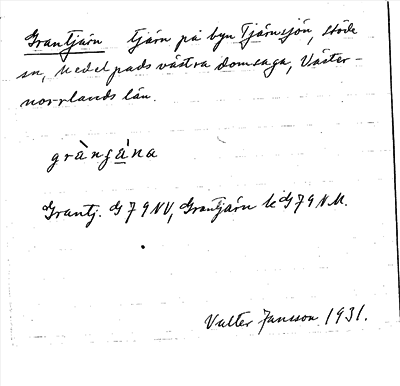 Grantjärn tjärn på byn Tjärnsjön, Stöde
sn, Medelpads västra domsaga, Väster-
norrlands län.
grànʃà̱na
Grantj. G79NV, Grantjärn lé G79NM.
Valter Jansson 1931.